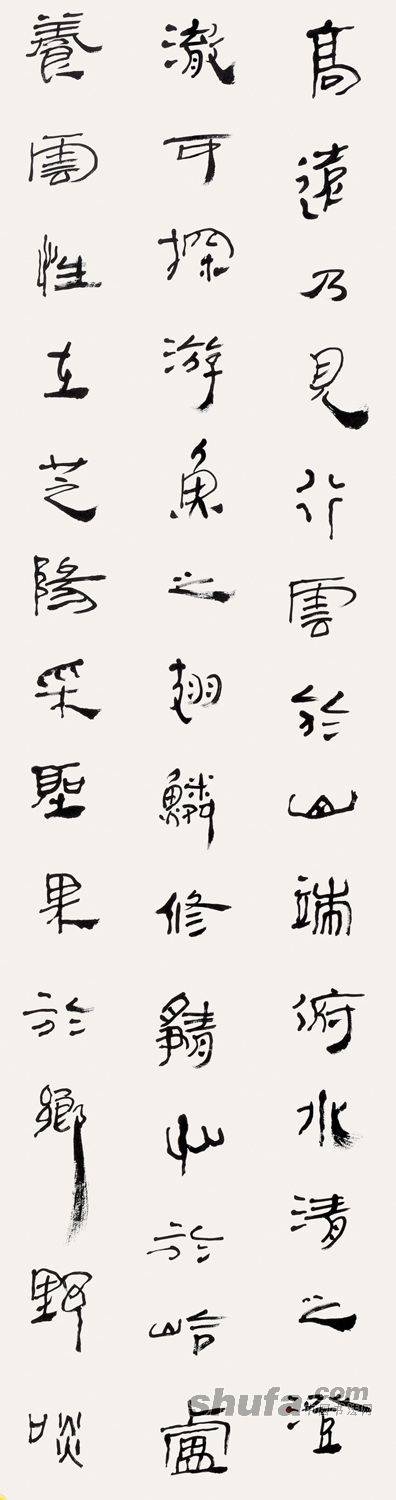 高遠乃見行雲於山端俯水清之澄
澈可探游魚之翅鱗修靜心於峆盧
養雲性在芝陽采聖果於鄉野啖
shufa.com